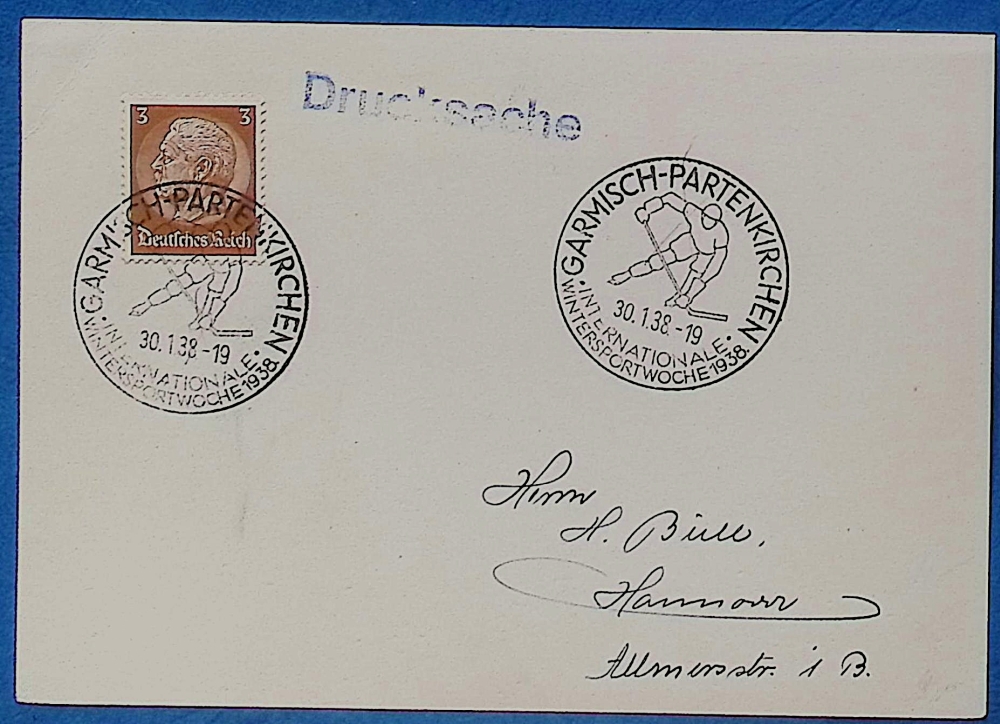 Drucksache
3 3
Deutsches Reich
GARMISCH-PARTENKIRCHEN
30.1.38.-19
• INTERNATIONALE •
WINTERSPORTWOCHE 1938.
GARMISCH-PARTENKIRCHEN
30.1.38.-19
• INTERNATIONALE •
WINTERSPORTWOCHE 1938.
Herrn
H. Büll,
Hannover
Allmersstr. 1 B.